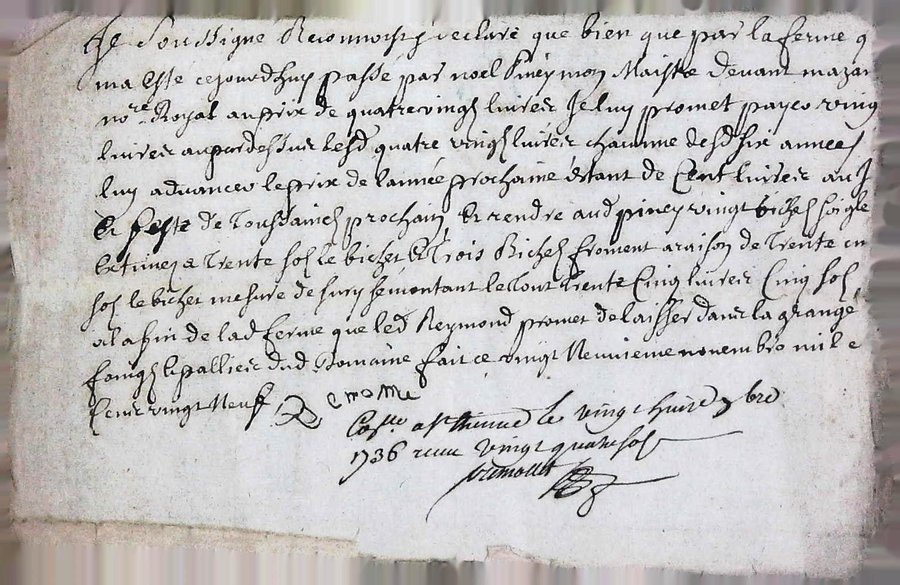 Je Soussigne Reconnois et declare que bien que par la ferme q
ma este cejourdhuy passée par noel Piney mon Maistre devant mazan
nore Royal au prix de quatre vingt livres Je luy promet payer vingt
livres au par dessus lesd quatre vingt livres chacune desd six années
luy advancer le prix de lannée prochaine estant de Cent livres au J
et feste de Toussainct prochain et rendre aud piney vingt bichet soigle
a trente sols le bichet et Trois Bichet froment a raison de Trente cin
sols le bichet mesure de Sury se montant le tout trente Cinq livres Cinq sols
a la fin de lad ferme que led Reymond promet de laisser dans la grange
foings et palliers dud Domaine fait ce vingt Neuvieme novembre mil e
Cens vingt Neuf
Conlle a St Etienne le vingt huit xbre
1736 reçu vingt quatre sols